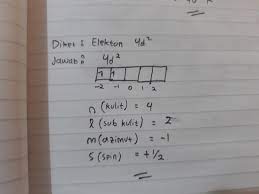 Diket : Elektron 4d²
Jawab : 4d²
1 1
-2 -1 0 1 2
n (kulit) = 4
l (sub kulit) = 2
m (azimut) = -1
s (spin) = +1/2